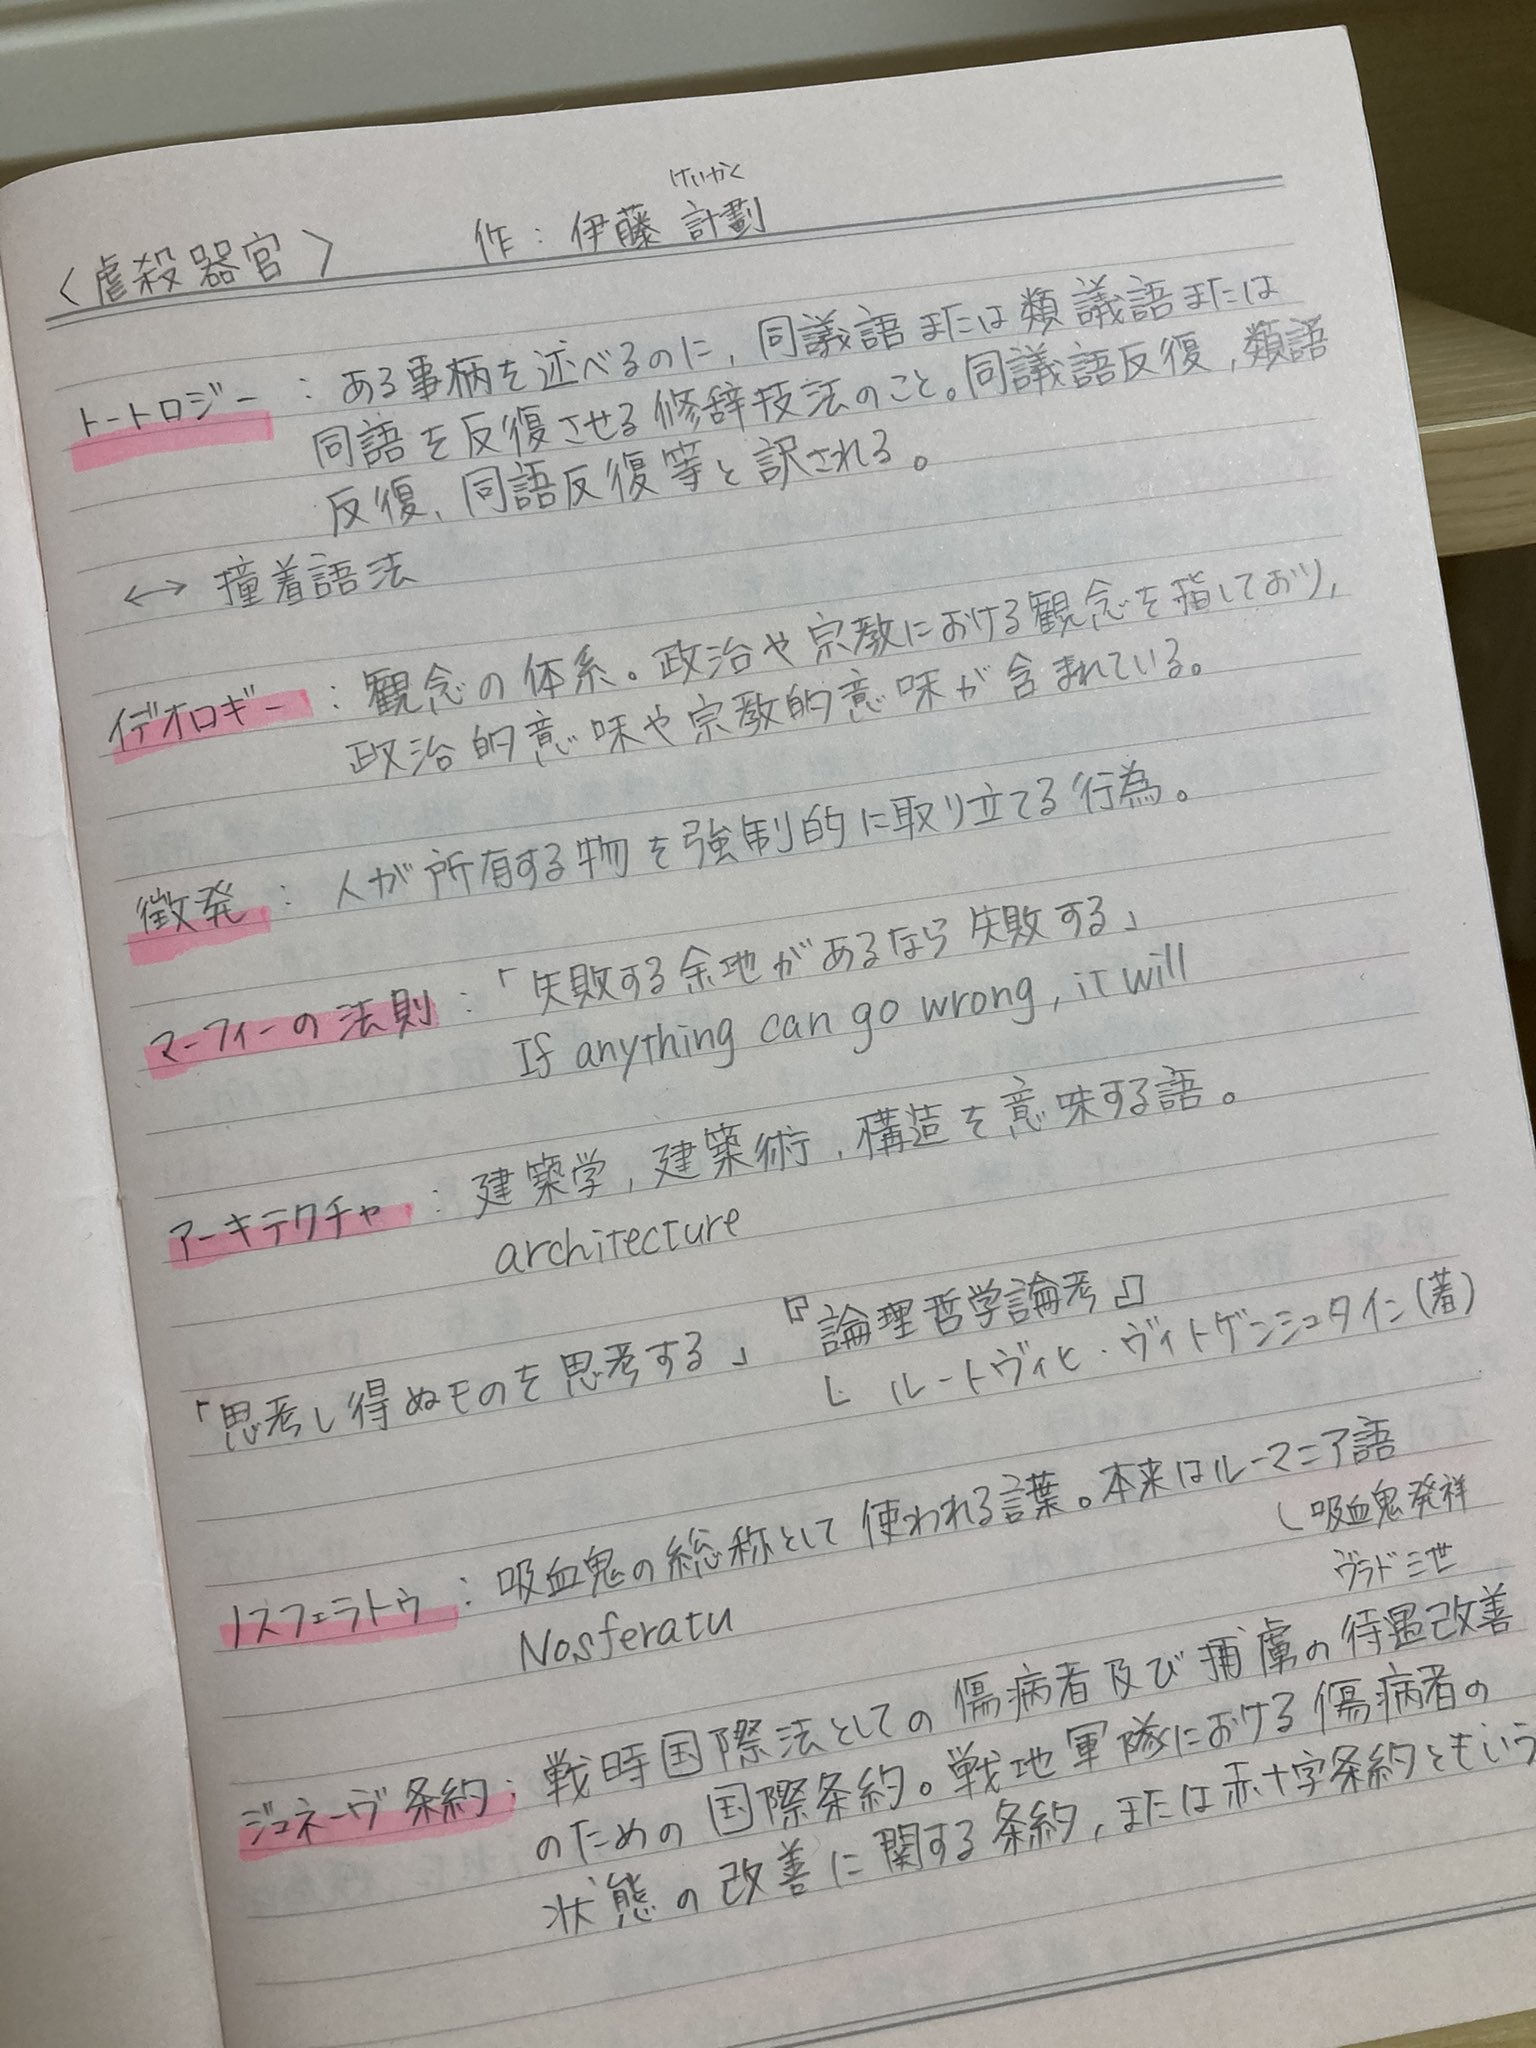 〈虐殺器官〉 作：伊藤 計劃
けいかく
トートロジー：ある事柄を述べるのに，同議語または類議語または
同語を反復させる修辞技法のこと。同議語反復，類語
反復，同語反復等と訳される。
↔ 撞着語法
イデオロギー：観念の体系。政治や宗教における観念を指しており，
政治的意味や宗教的意味が含まれている。
徴発：人が所有する物を強制的に取り立てる行為。
マーフィーの法則：「失敗する余地があるなら失敗する」
If anything can go wrong, it will
アーキテクチャ：建築学，建築術，構造を意味する語。
architecture
「思考し得ぬものを思考する」『論理哲学論考』
└ ルートヴィヒ・ヴィトゲンシュタイン(著)
ノスフェラトゥ：吸血鬼の総称として使われる言葉。本来はルーマニア語
Nosferatu
└ 吸血鬼発祥
ヴラド三世
ジュネーヴ条約：戦時国際法としての傷病者及び捕虜の待遇改善
のための国際条約。戦地軍隊における傷病者の
状態の改善に関する条約，または赤十字条約ともいう